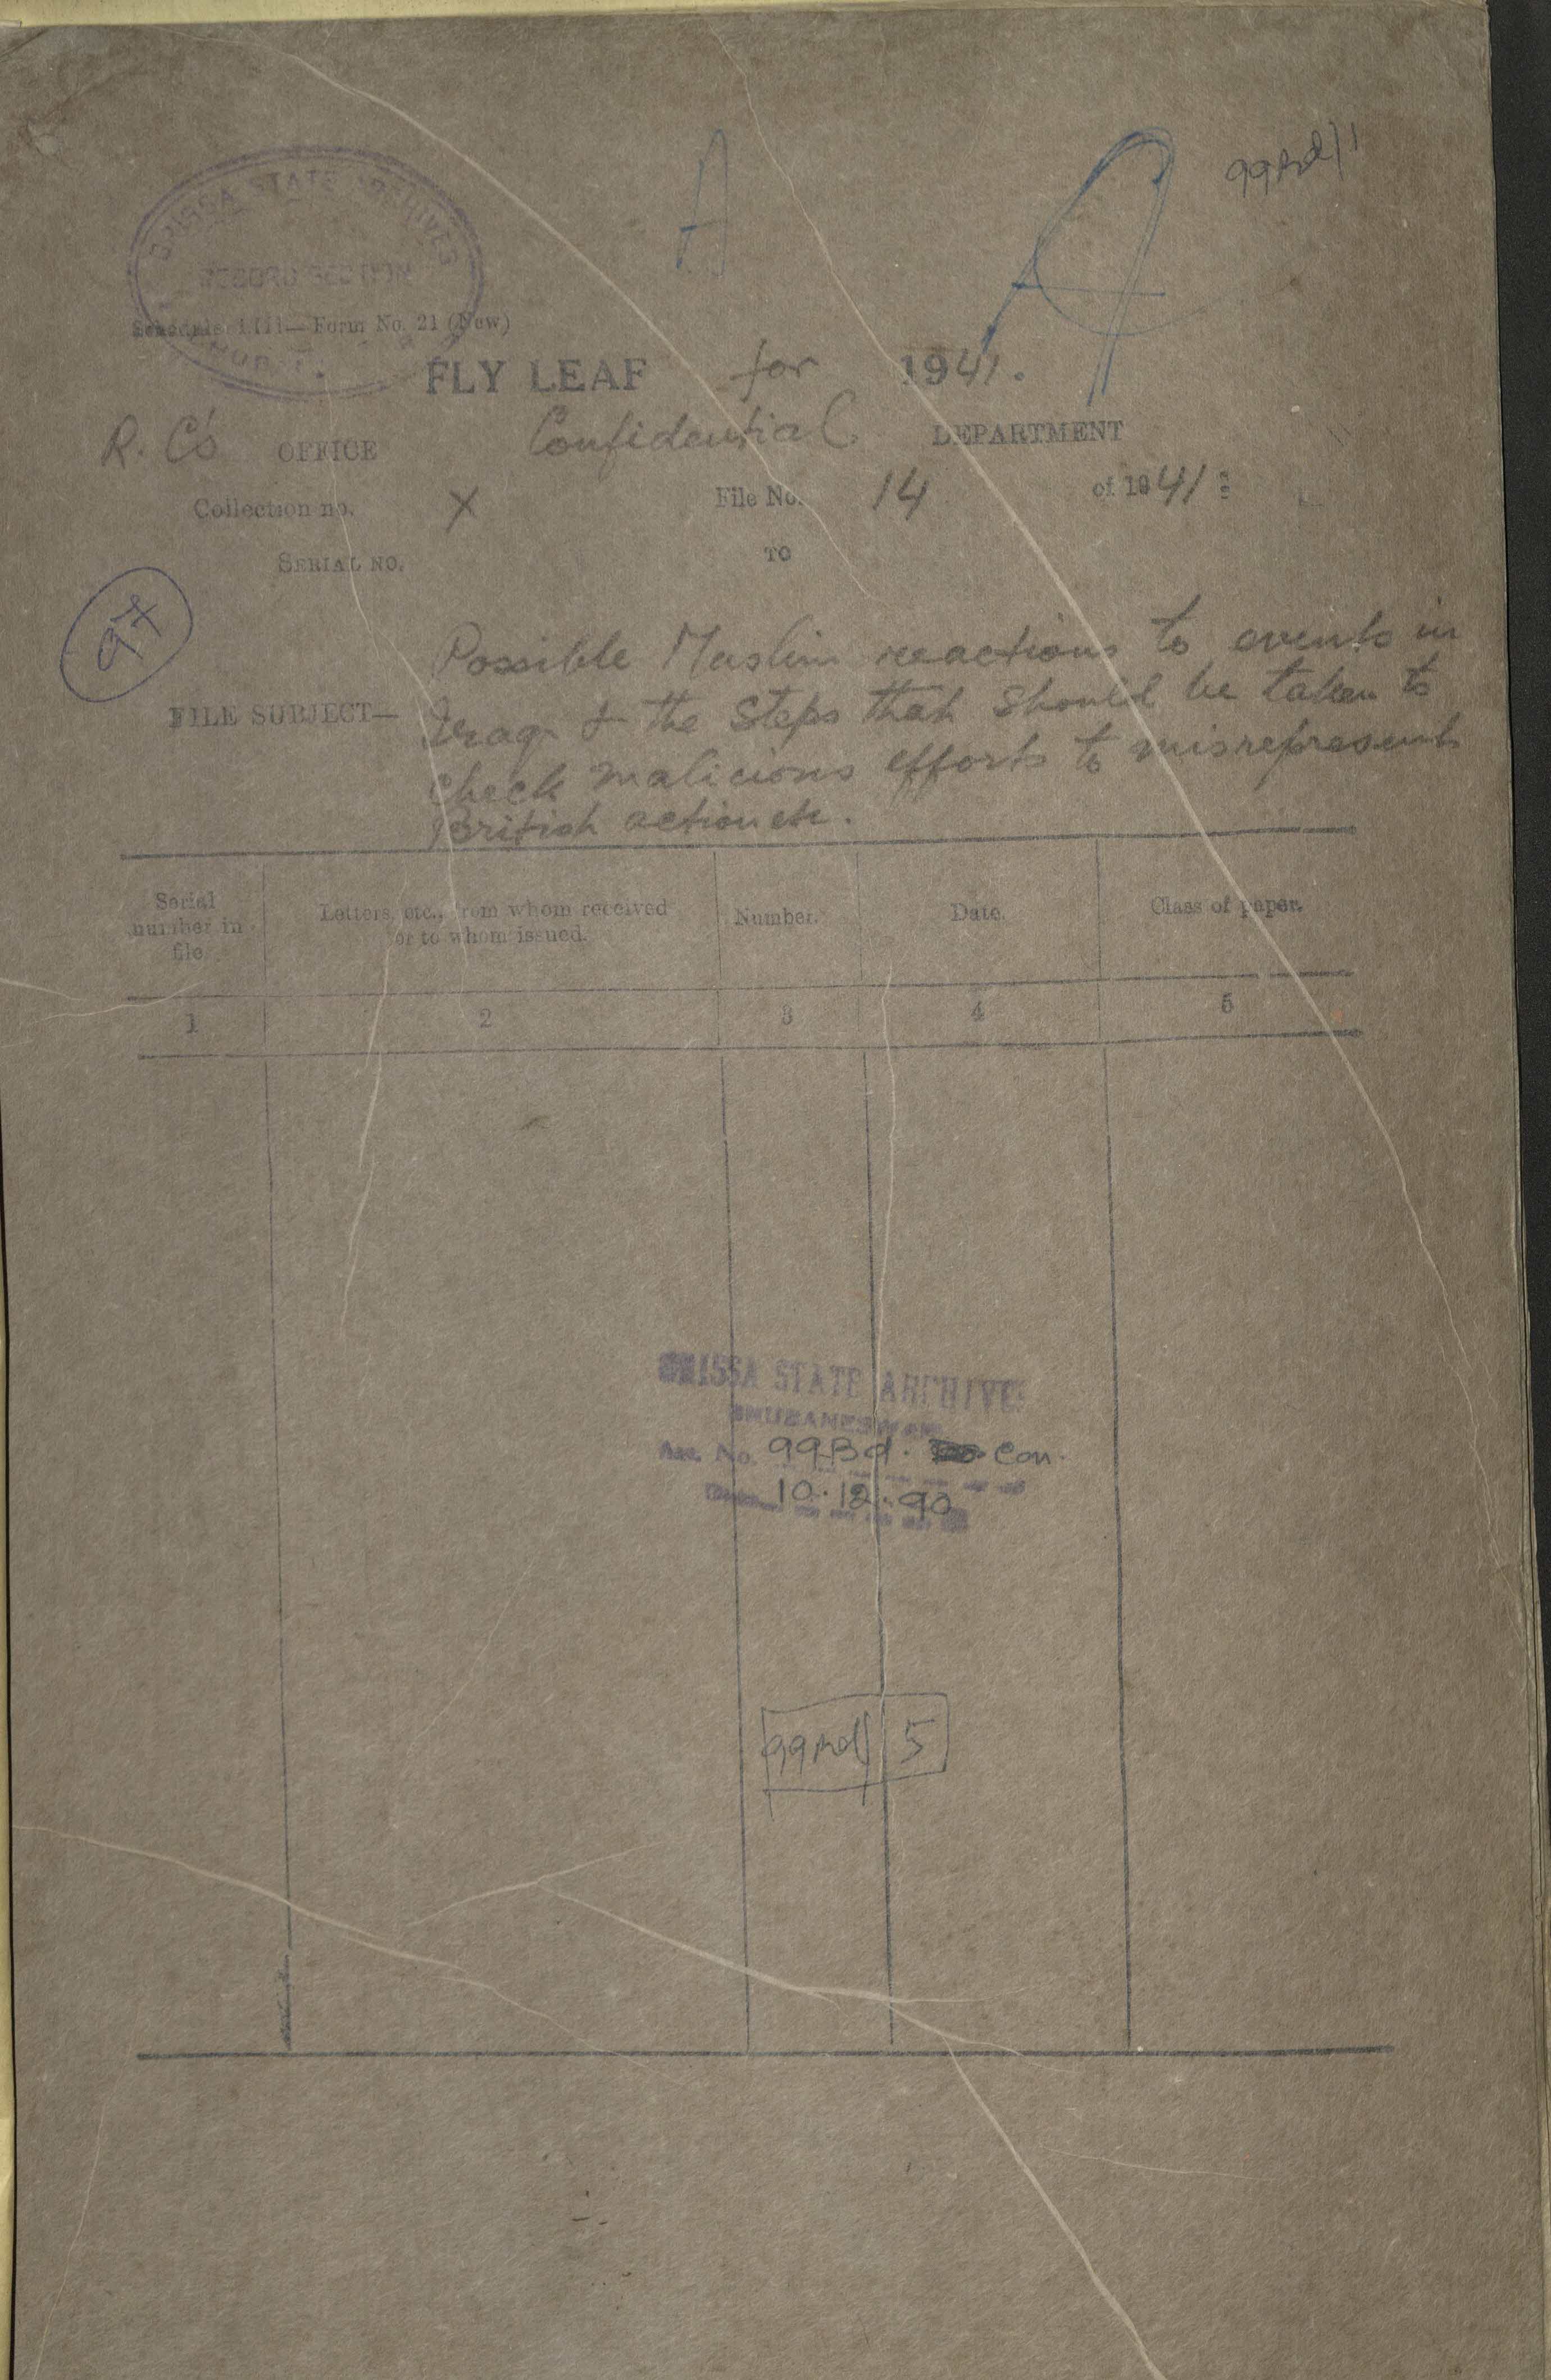 A
99Bd/1
ORISSA STATE ARCHIVES
RECORD SECTION
Form No. 21 (New)
FLY LEAF for 1941.
R. C's OFFICE Confidential DEPARTMENT
Collection no. X File No. 14 of 1941
SERIAL NO. TO
97
Possible Muslim reactions to events in
FILE SUBJECT— Iraq & the steps that should be taken to
check malicious efforts to misrepresent
British action etc.
Serial number in file. Letters, etc., from whom received or to whom issued. Number. Date. Class of paper.
1 2 3 4 5
ORISSA STATE ARCHIVES
BHUBANESWAR
Acc. No. 99Bd. Con.
Date 10.12.90
99Bd 5